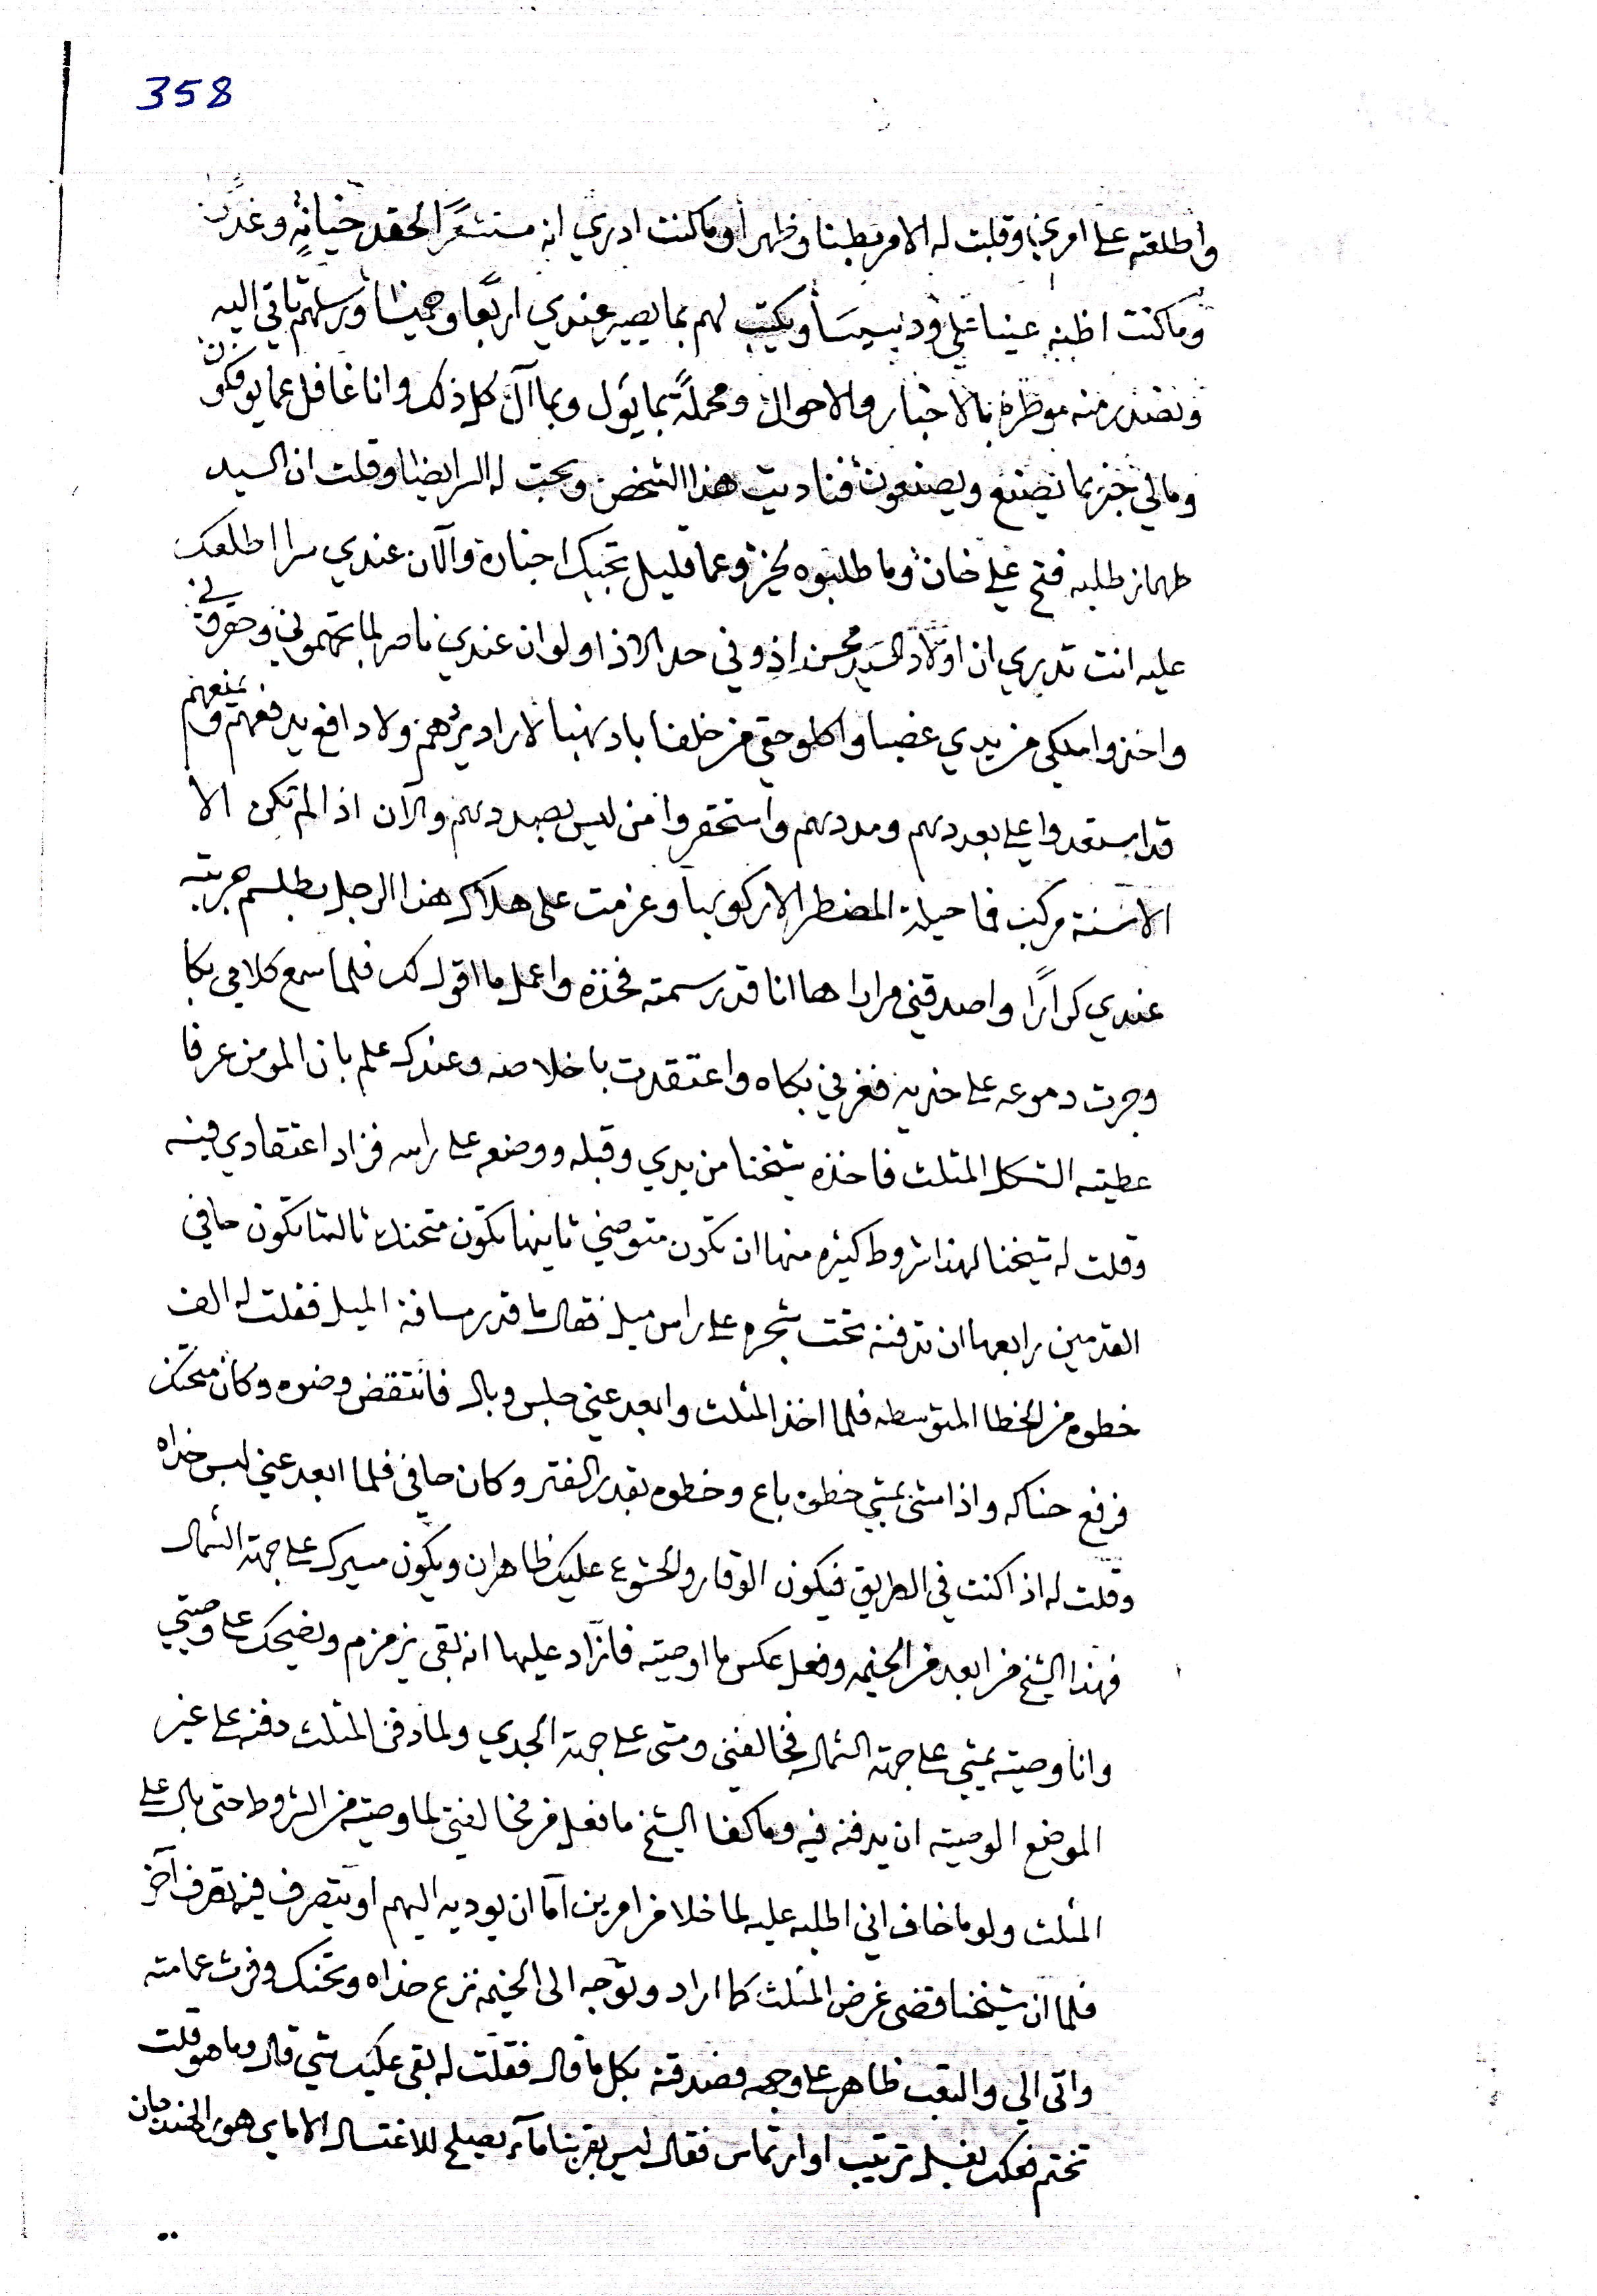 358
واطلعته على امري وقلت له الامر بطنا وظهرا وما كنت ادري انه مستشعرا لحقد خيانة وغدر
وما كنت اظنه عينا علي ودسيسا ويكتب لهم بما يصير عندي اربعا وخميسا ورسلهم تاتي اليه
وتصدر منه موطرة بالاخبار والاحوال ومحملة بما يئول وبما آل كل ذلك وانا غافل عما يوفكون
ومالي خبر بما يصنع ويصنعون فناديت هذا الشخص وبحت له السر ايضا وقلت ان السيد
طهماز طلبه فتح علي خان وما طلبوه لخير وعما قليل تجيك اخباره والآن عندي سرا اطلعك
عليه انت تدري ان اولاد السيد محسن اذوني حد الاذا ولو ان عندي ناصر لما تهموني وحقروني
واخذوا ملكي من يدي غصبا واكلو حقي من خلفا باد نهبا لا راد يردهم ولا دافع يدفعهم ويمنعهم
قد استعدوا علي بعددهم ومددهم واستحقروا من ليس بصددهم والآن اذا لم تكن الا
الاسنة مركب فما حيلة المضطر الا ركوبها وعزمت على هلاك هذا الرجل بطلسم جربته
عندي كرارًا واصدقني مرارا ها انا قد رسمته فخذه واعمل ما اقول لك فلما سمع كلامي بكا
وجرت دموعه على خديه فغرني بكاه واعتقدت باخلاصه وعندك علم بان المومن عرفا
عطيته الشكل المثلث فاخذه شيخنا من يدي وقبله ووضعه على راسه فزاد اعتقادي فيه
وقلت له شيخنا لهذا شروط كثيره منها ان تكون متوضي ثانيها تكون متحنك ثالثها تكون حافي
القدمين رابعها ان تدفنه تحت شجره على راس ميل فقال ما قدر مسافة الميل فقلت له الف
خطوه من الخطا المتوسطه فلما اخذ المثلث وابعد عني جلس وبال فانتقض وضوه وكان متحنك
فرفع حناكه واذا مشى يمشي خطوه باع وخطوه بقدر الفتر وكان حافي فلما ابعد عني لبس حذاه
وقلت له اذا كنت في الطريق فيكون الوقار والخشوع عليك ظاهران ويكون مسيرك على جهة الشمال
فهذا الشيخ من ابعد من الخيمه وفعل عكس ما اوصيته فازاد عليها انه بقى يزمزم ويضحك على وصيتي
وانا وصيته يمشي على جهة الشمال فخالفني ومشى على جهة الجدي ولما دفن المثلث دفنه على غير
الموضع الوصيته ان يدفنه فيه وما كفا الشيخ ما فعل من مخالفتي لما وصيته من الشروط حتى بال على
المثلث ولو ما خاف اني اطلبه عليه لما خلا من امرين اما ان يوديه اليهم او يتصرف فيه تصرف آخر
فلما ان شيخنا قضى غرض المثلث كما اراد وتوجه الى الخيمه نزع حذاه وتحنك وفرت عمامته
واتى الي والتعب ظاهر على وجهه فصدقته بكل ما قال فقلت له بقى عليك شي قال وما هو قلت
تختم فعلك بغسل ترتيب او ارتماس فقال ليس بقربنا مآء يصلح للاغتسال الا ماي هور الجندمان